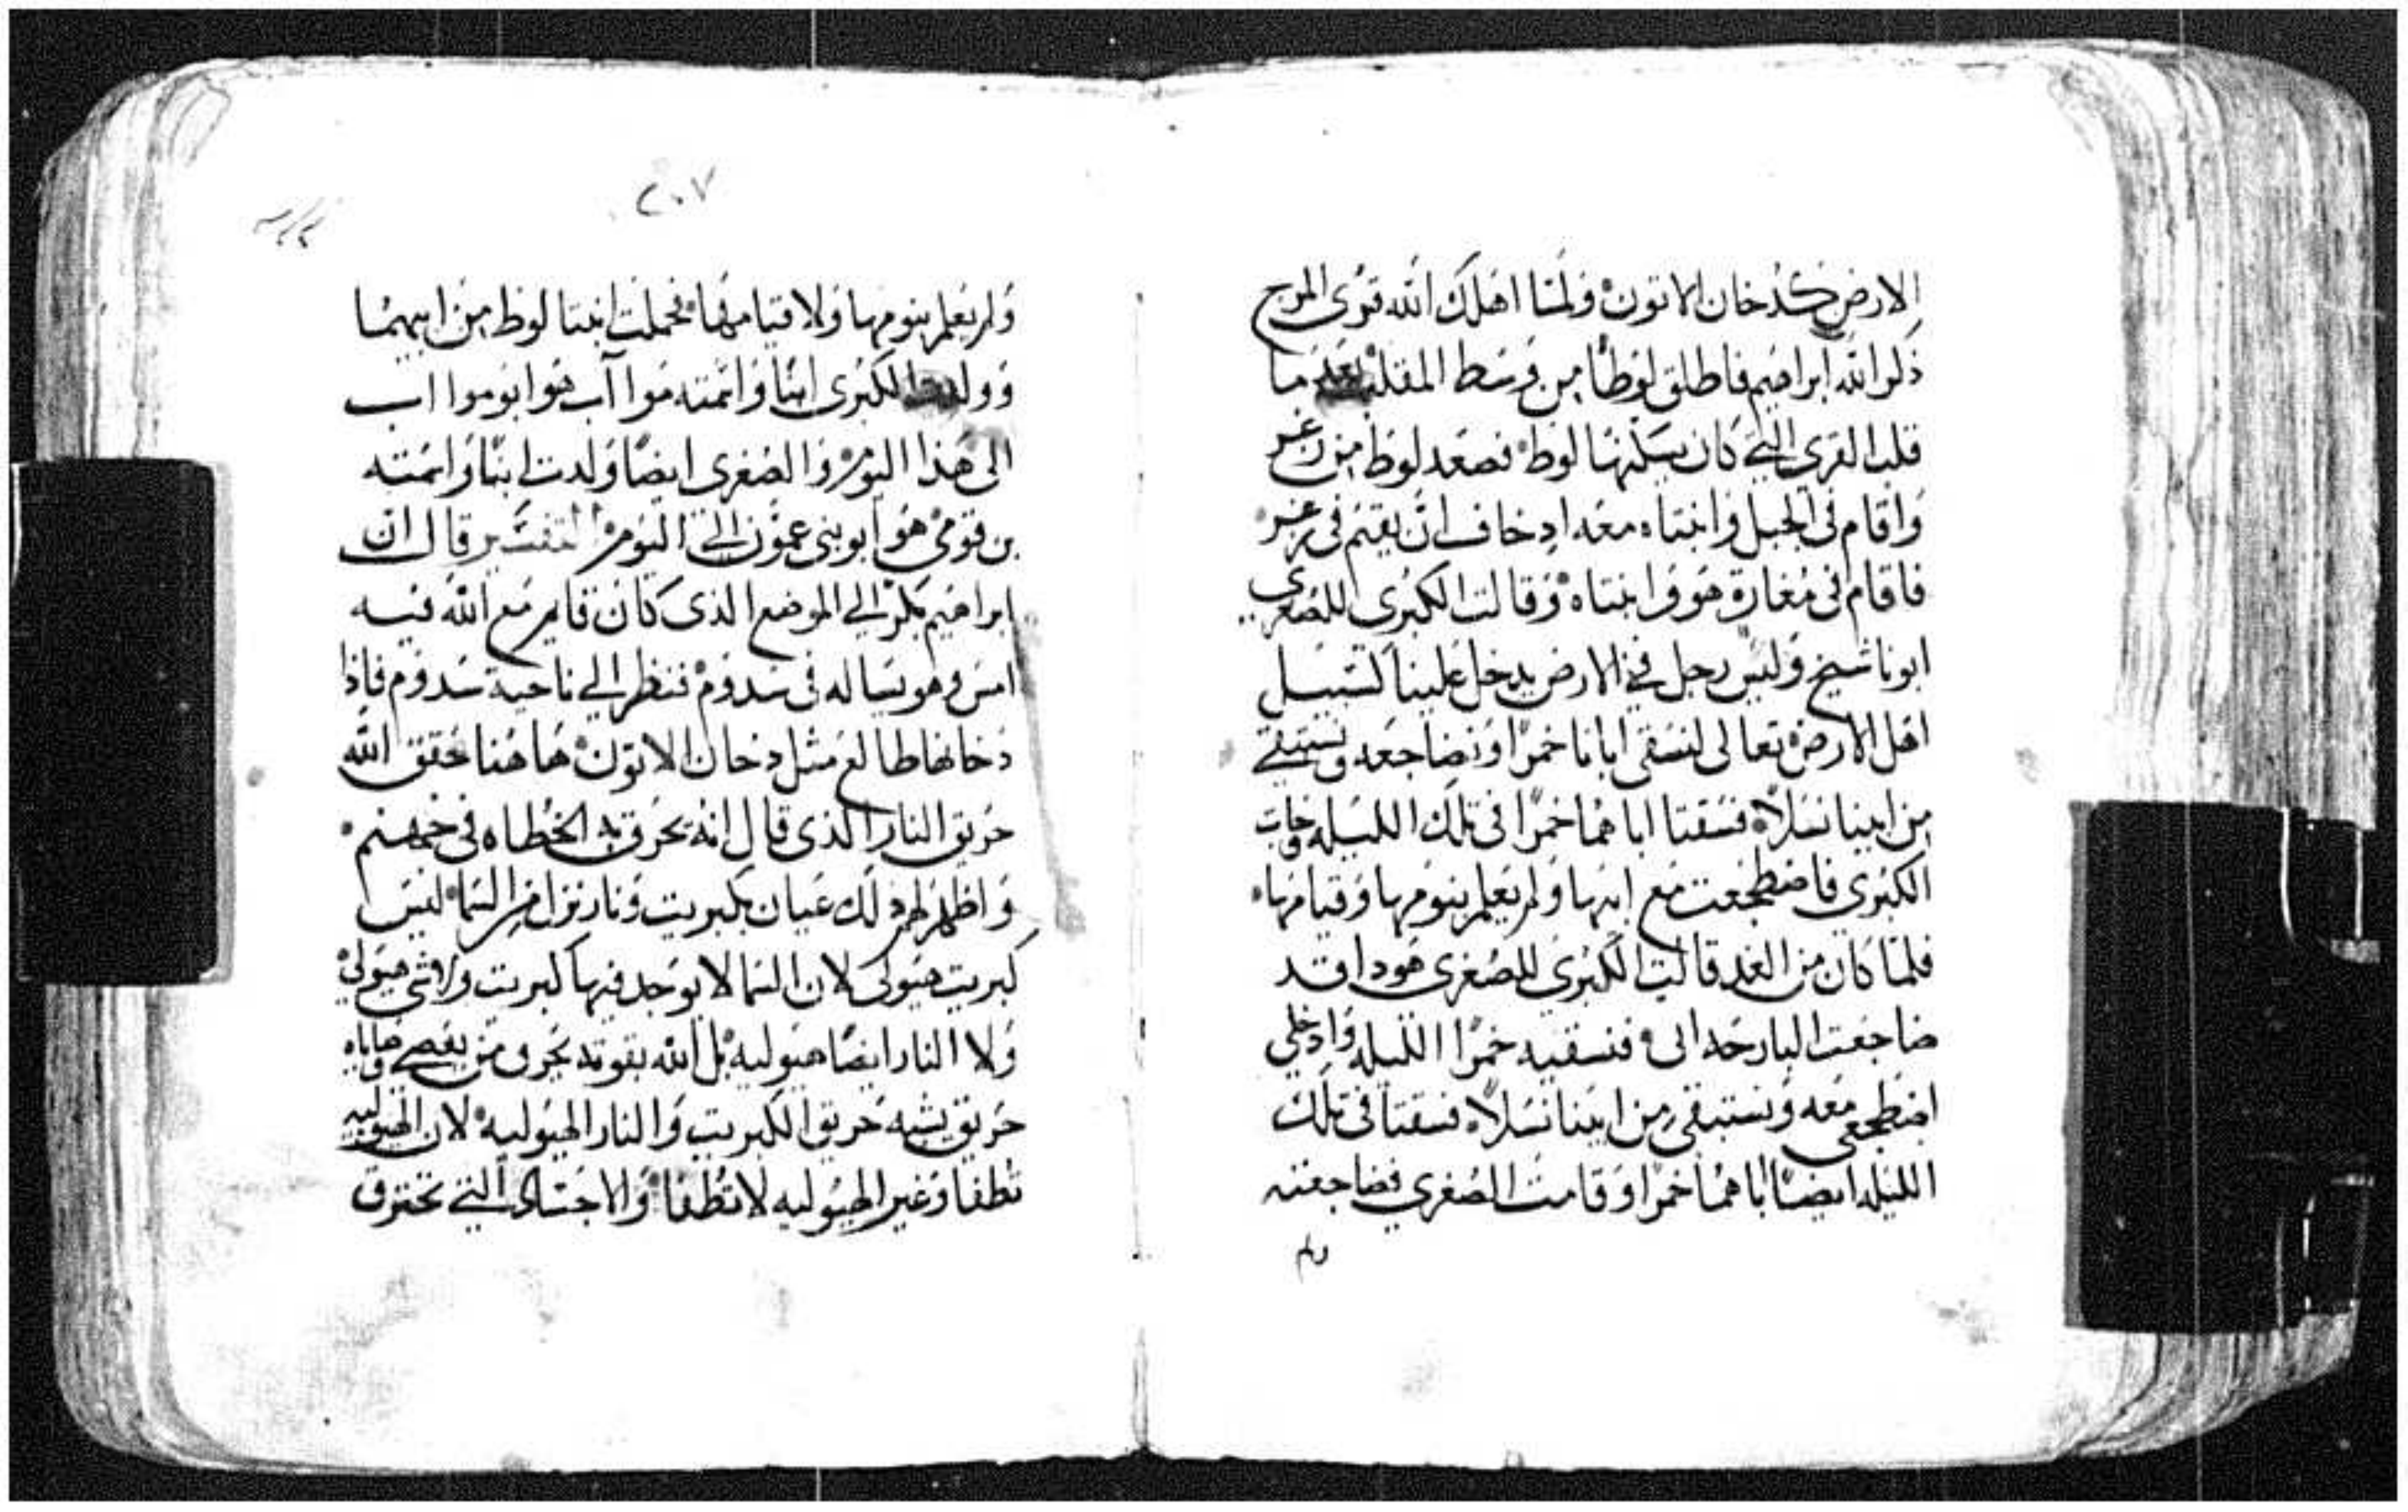 الارض كدخان الاتون ولمّا اهلك الله قرى المرج
ذكر الله ابراهيم فاطلق لوطًا من وسط المقلبه بعد ما
قلب القرى التي كان يسكنها لوط فصعد لوط من زغر
واقام في الجبل وابنتاه معه اذ خاف ان يقيم في زغر
فاقام في مغارة هو وابنتاه وقالت الكبرى للصغرى
ابونا شيخ وليس رجل في الارض يدخل علينا كسبيل
اهل الارض تعالى لنسقى ابانا خمرًا ونضاجعه ونستبقي
من ابينا نسلًا فسقتا اباهما خمرًا في تلك الليله وجات
الكبرى فاضطجعت مع ابيها ولم يعلم بنومها وقيامها
فلمّا كان من الغد قالت الكبرى للصغرى هوذا قد
ضاجعت البارحه ابى فنسقيه خمرًا الليله وادخلي
اضطجعى معه ونستبقى من ابينا نسلًا فسقتا في تلك
الليله ايضًا اباهما خمرًا وقامت الصغرى فضاجعته
ولم
٢٠٧
ولم يعلم بنومها ولا قيامها فحملت ابنتا لوط من ابيهما
وولدت الكبرى ابنًا واسمته موا آب هو ابو موا اب
الى هذا اليوم والصغرى ايضًا ولدت ابنًا واسمته
بن قومي هو ابو بنى عمون الى اليوم التفسير قال ان
ابراهيم بكر الي الموضع الذى كان قايم مع الله فيه
امس وهو يساله في سدوم فنظر الي ناحية سدوم فاذا
دخانها طالع مثل دخان الاتون هاهنا حقق الله
حريق النار الذى قال انه يحرق به الخطاه في جهنم
واظهر لهم ذلك عيان بكبريت ونار نزل من السما ليس
كبريت هيولى لان السما لا يوجد فيها كبريت ولا شي هيولي
ولا النار ايضًا هيوليه بل الله بقوته يحرق من يعصي وصاياه
حريق يشبه حريق الكبريت والنار الهيوليه لان الهيوليه
تطفا وغير الهيوليه لا تطفا والاجساد التي تحترق